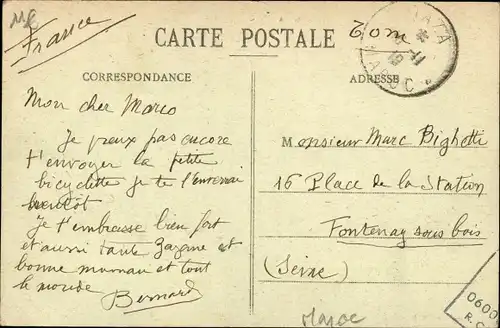 France
CARTE POSTALE
CORRESPONDANCE
ADRESSE
Mon cher Marco
Je peux pas encore
t'envoyer la petite
bicyclette je te l'enverrai
bientôt
Je t'embrasse bien fort
et aussi tante Zazane et
bonne maman et tout
le monde
Bernard
Monsieur Marc Bighetti
16 Place de la Station
Fontenay sous bois
(Seine)
Maroc
0600